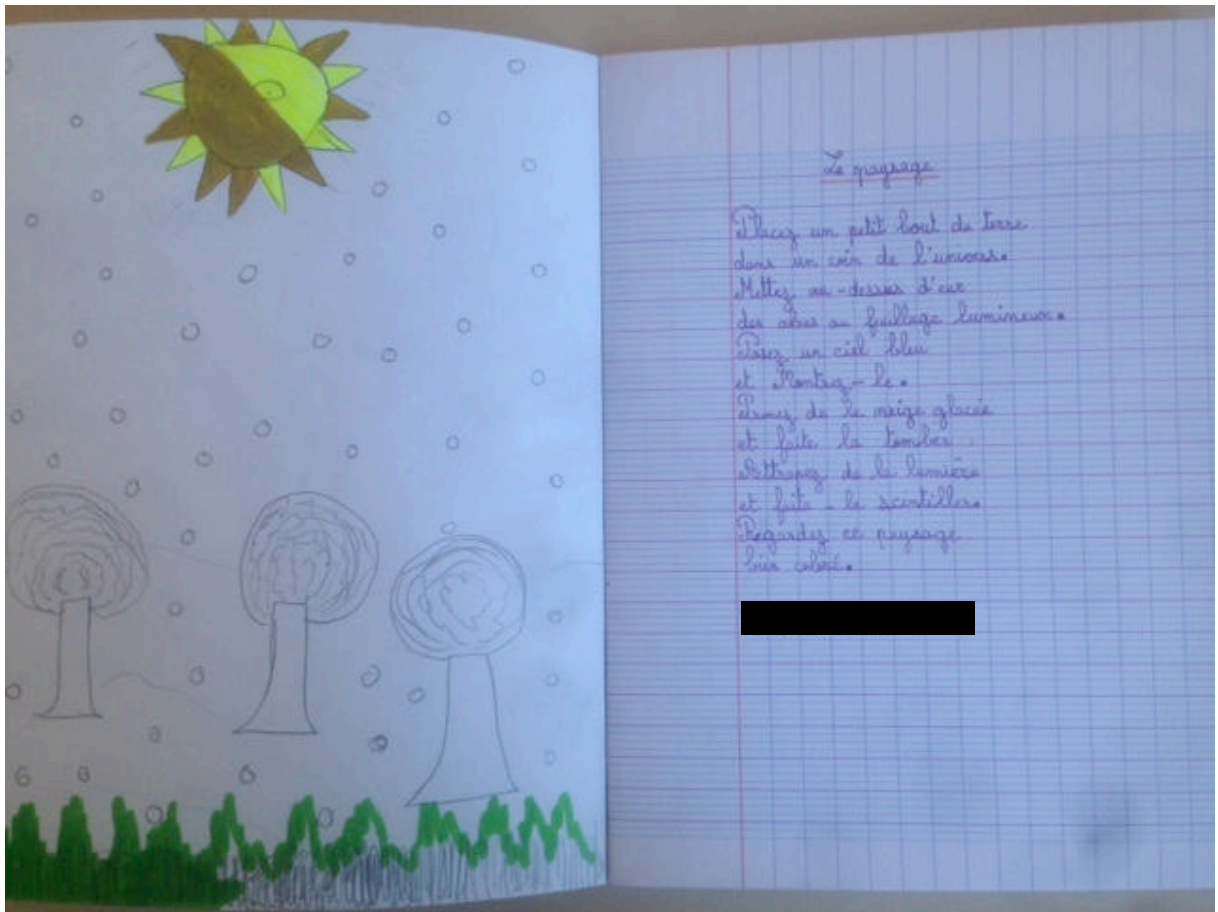 Le paysage
Placez un petit bout de terre
dans un coin de l'univers.
Mettez au-dessus d'eux
des arbres au feuillage lumineux.
Posez un ciel bleu
et Montrez-le.
Prenez de la neige glacée
et faite la tomber
Attrapez de la lumière
et faite-la scintiller.
Regardez ce paysage
bien coloré.